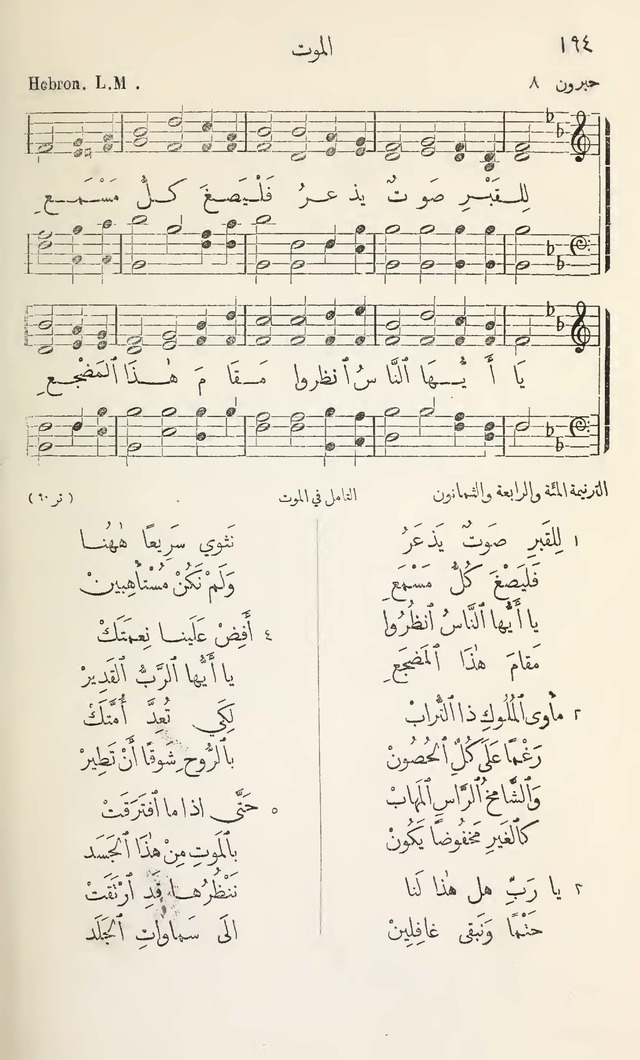 الموت ١٩٤
Hebron. L.M . حبرون ٨
لِلــقَبْــرِ صَوتٌ يذعــرُ فَلْيَصغَ كــلُّ مَسْـمَـــعِ
يَا أَ يُّــهَا ٱلنَّا سُ ٱنظروا مَــقَا مَ هٰــذَا ٱلمَضْجَــعِ
الترنيمة المئة والرابعة والثمانون التامل في الموت . (تر ٦٠)
١ لِلقَبرِ صَوتٌ يَذعَرُ
فَليَصْغَ كُلُّ مَسْمَعِ
يا أَيُّها ٱلنَّاسُ ٱنظُرُوا
مَقامَ هٰذا ٱلمَضْجَعِ
٢ مأوى ٱلمُلُوكِ ذا ٱلتُّرابْ
رَغْمًا عَلَى كُلِّ ٱلحُصُونْ
وَٱلشَّامخُ ٱلرَّاسِ ٱلمهابْ
كالغَيرِ مَخفُوضًا يَكُونْ
٢ يا رَبِّ هل هٰذا لَنا
حَتْمًا وَنَبقى غافِلِينْ
نَثوي سَرِيعًا هٰهُنا
وَلَمْ نَكُنْ مُسْتأهِبِينْ
٤ أَفِضْ عَلَينا نِعمَتَكْ
يا أَيُّها ٱلرَّبُّ ٱلقَدِيرْ
لِكَي تُعِدَّ أُمَّتَكْ
بٱلرُّوحِ شَوقًا أَنْ تَطِيرْ
٥ حَتَّى اذا ما ٱفتَرَقَتْ
بٱلموتِ مِنْ هٰذا ٱلجَسَد
نَنْظُرُها قَدِ ٱرْتَقَتْ
الَى سَماواتِ ٱلجَلَد